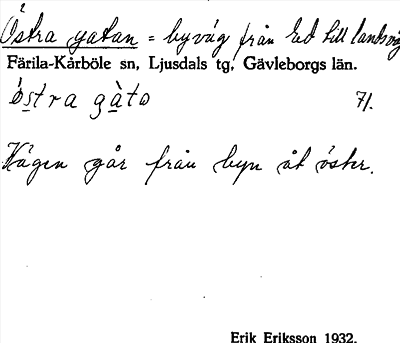 Östra gatan = byväg från Ed till landsväg
Färila-Kårböle sn, Ljusdals tg, Gävleborgs län.
östra gàto 71.
Vägen går från byn åt öster.
Erik Eriksson 1932.